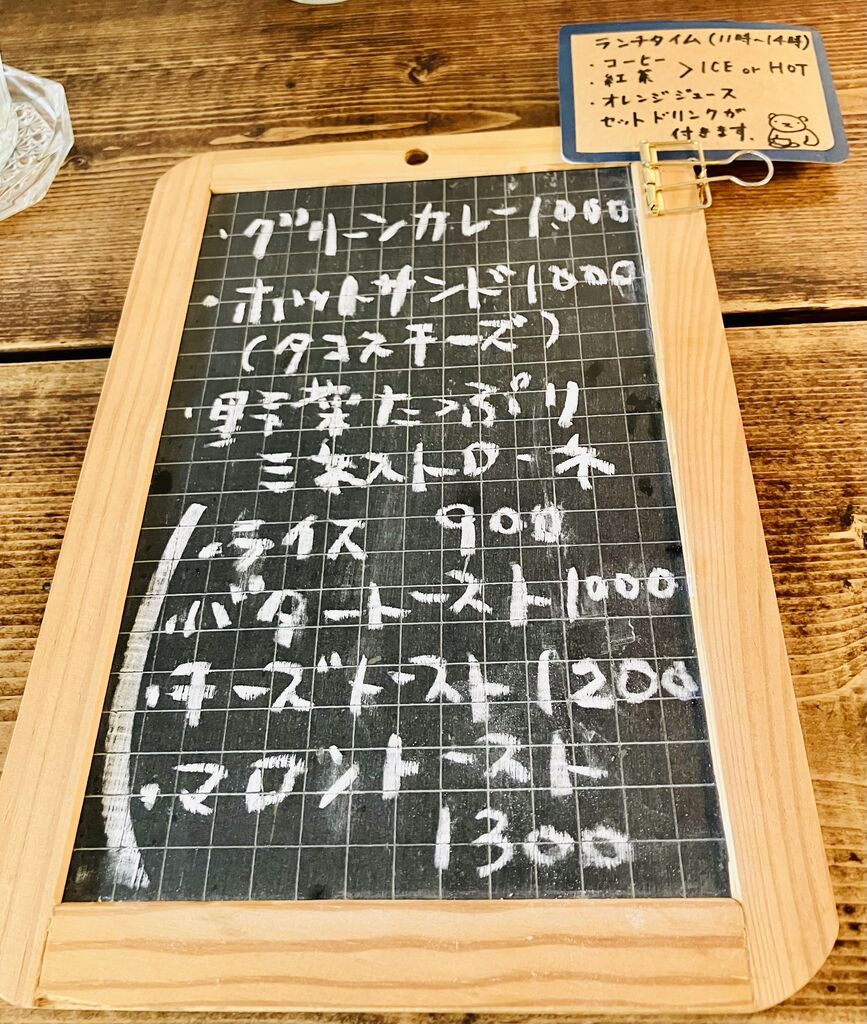 ランチタイム(11時~14時)
・コーヒー
・紅茶 > ICE or HOT
・オレンジジュース
セットドリンクが
付きます。
・グリーンカレー 1000
・ホットサンド 1000
(タコスチーズ)
・野菜たっぷり
ミネストローネ
・ライス 900
・バタートースト 1000
・チーズトースト 1200
・マロントースト
1300